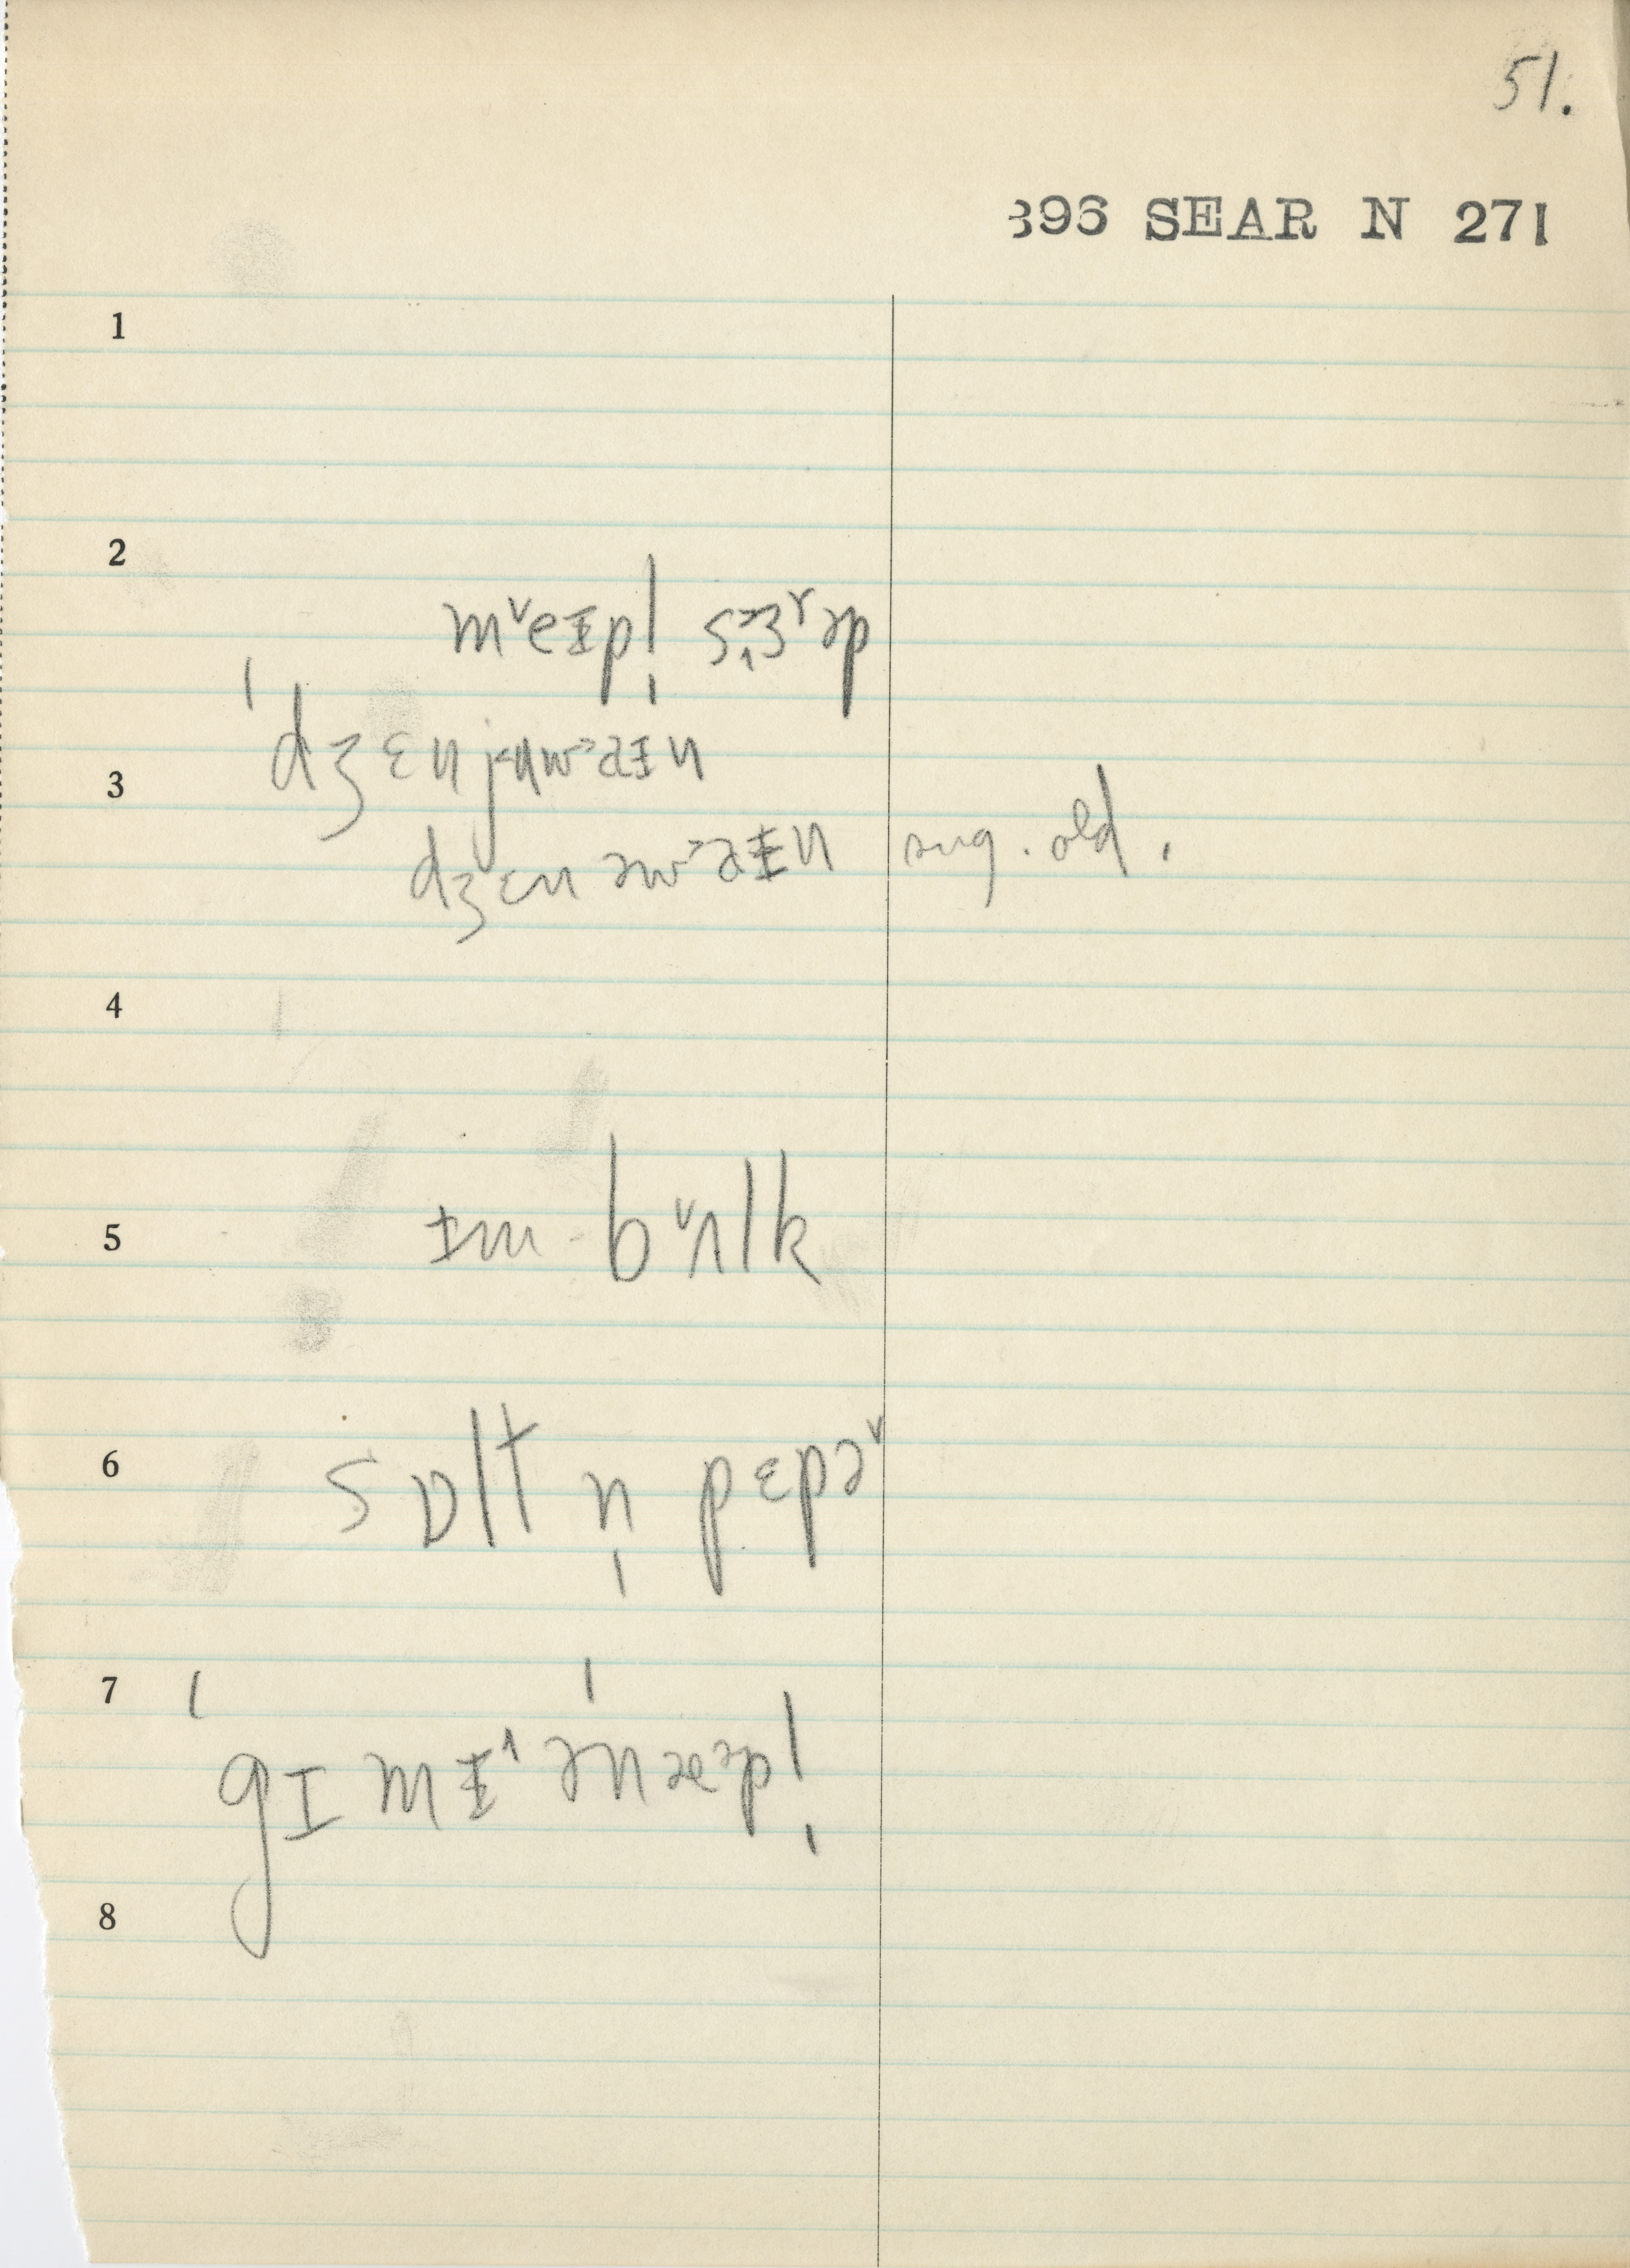 51.
396 SEAR N 271
1
2
m˅eɪ̵pl̩ sɜ˞ɤəp
3
ˈdʒɛnjuwᵊaɪ̵n
dʒɛn əwᵊaɪ̵n sug. old.
4
5
ɪ̵m bʌ˅lk
6
sɒlt n̩ pɛpə˅
7
ˈgɪmɪ̵˄ ˈənæᵊpl̩
8